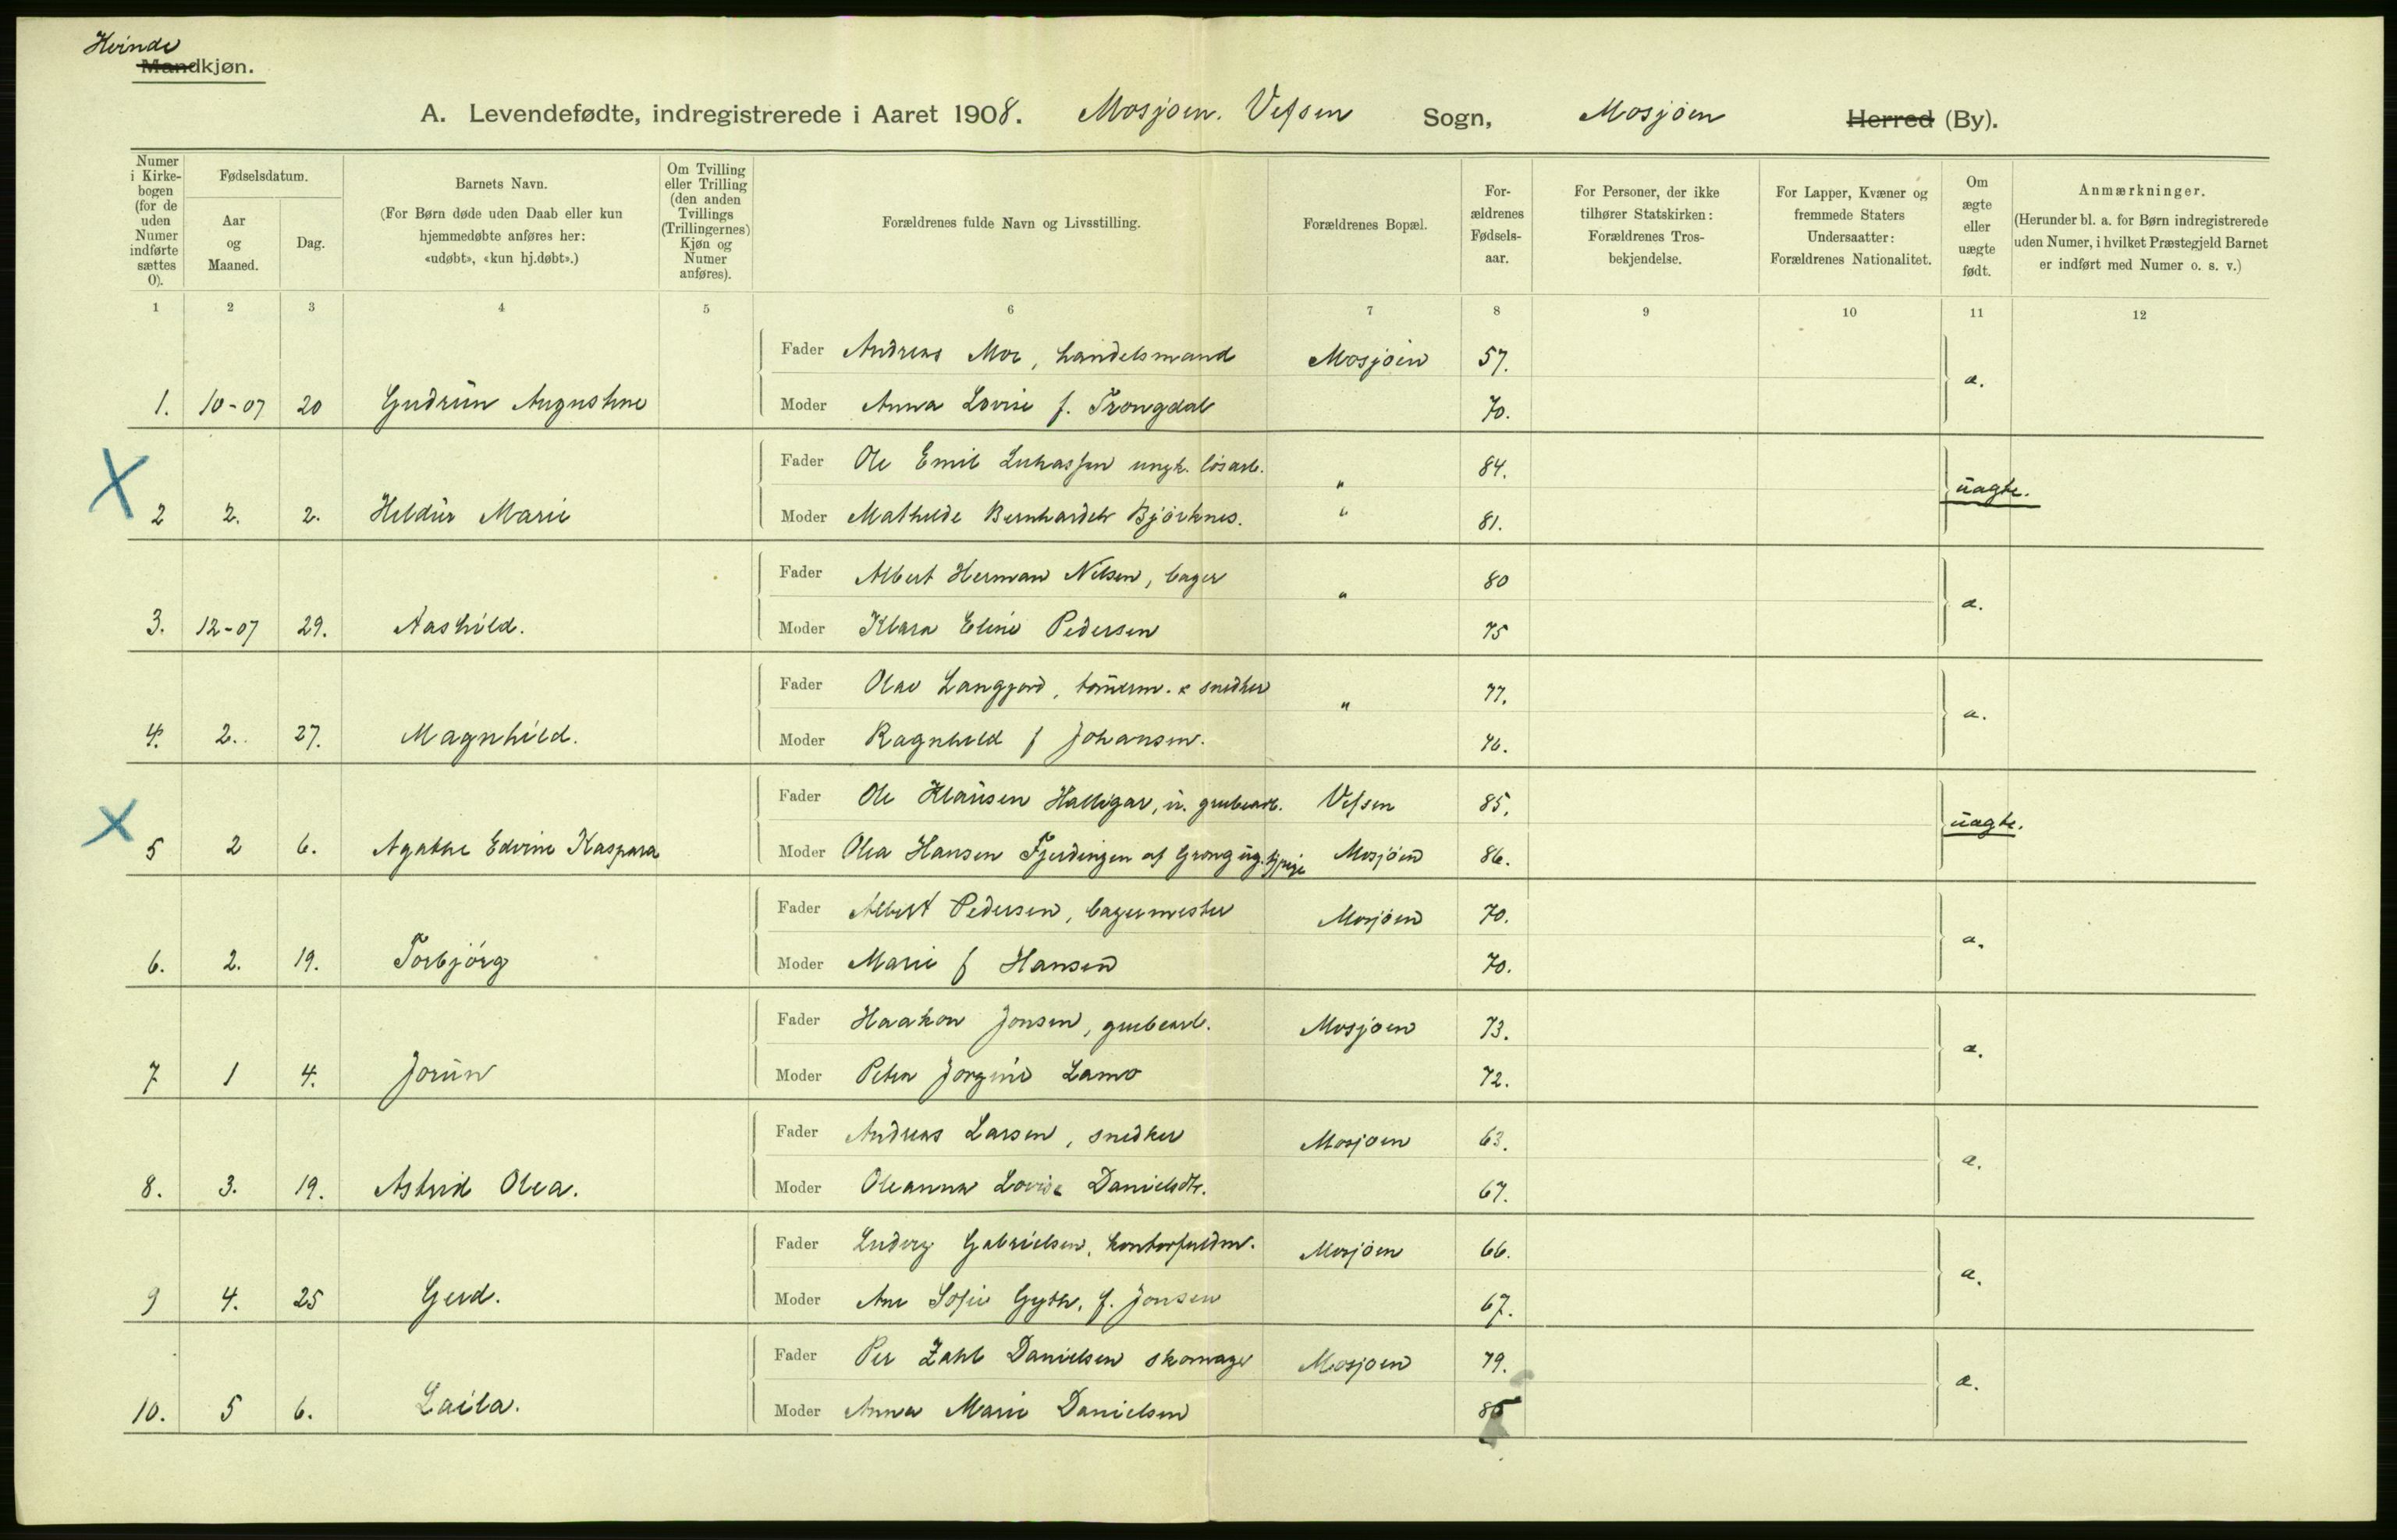 Kvinde
Mandkjøn.
A. Levendefødte, indregistrerede i Aaret 1908. Mosjøen. Vefsen Sogn, Mosjøen Herred (By).
Numer i Kirkebogen (for de uden Numer indførte sættes 0).
Fødselsdatum.
Aar og Maaned.
Dag.
Barnets Navn.
(For Børn døde uden Daab eller kun hjemmedøbte anføres her: «udøbt», «kun hj.døbt».)
Om Tvilling eller Trilling (den anden Tvillings (Trillingernes) Kjøn og Numer anføres).
Forældrenes fulde Navn og Livsstilling.
Forældrenes Bopæl.
Forældrenes Fødselsaar.
For Personer, der ikke tilhører Statskirken: Forældrenes Trosbekjendelse.
For Lapper, Kvæner og fremmede Staters Undersaatter: Forældrenes Nationalitet.
Om ægte eller uægte født.
Anmærkninger.
(Herunder bl. a. for Børn indregistrerede uden Numer, i hvilket Præstegjeld Barnet er indført med Numer o. s. v.)
1 2 3 4 5 6 7 8 9 10 11 12
Fader Andreas Moe, handelsmand Mosjøen 57.
1. 10-07 20 Gudrun Augustine Moder Anna Lovise f. Trongdal 70. æ.
Fader Ole Emil Lukassen ungk. løsarb. " 84.
X 2 2. 2. Hildur Marie Moder Mathilde Bernhardette Bjørknes. " 81. uægte.
Fader Albert Herman Nilsen, bager " 80
3. 12-07 29. Aashild. Moder Klara Eline Pedersen 75 æ.
Fader Olav Langfjord, tømrm. & snedker " 77.
4. 2. 27. Magnhild. Moder Ragnhild f Johansen. 76. æ.
Fader Ole Klausen Halligar, u. grubearb. Vefsen 85.
X 5 2 6. Agathe Edvine Kaspara Moder Olea Hansen Fjerdingen af Grong ug. tjpige Mosjøen 86. uægte.
Fader Albert Pedersen, bagermester Mosjøen 70.
6. 2. 19. Torbjørg Moder Marie f Hansen 70. æ.
Fader Haakon Jonsen, grubearb. Mosjøen 73.
7 1 4. Jorun Moder Petra Jorgine Lamo 72. æ.
Fader Andreas Larsen, snedker Mosjøen 63.
8. 3. 19. Astrid Olea. Moder Oleanna Lovise Danielsdtr. 67. æ.
Fader Ludvig Gabrielsen, kontorfuldm. Mosjøen 66.
9 4. 25 Gerd. Moder Ane Sofie Gythe, f. Jonsen 67. æ.
Fader Per Zahl Danielsen skomager Mosjøen 79.
10. 5 6. Laila. Moder Anna Marie Danielsen 85 æ.